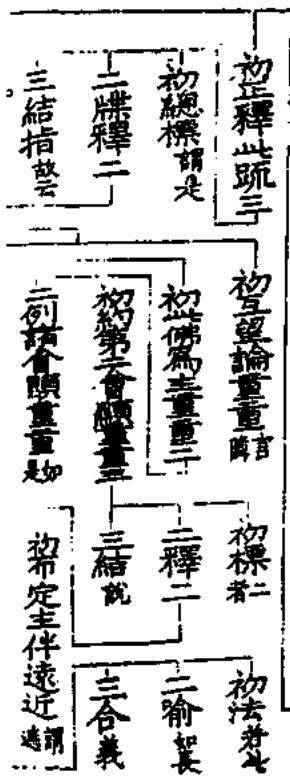 初正釋此疏三
初總標謂是
二牒釋二
三結指故云
初互望論重重言隣
初此佛為主重重二
初約第二會顯重重三
二例諸會顯重重如是
初標二者
二釋二
三結說
初布定主伴遠近謂遠
初法若此
二喻如長
三合義